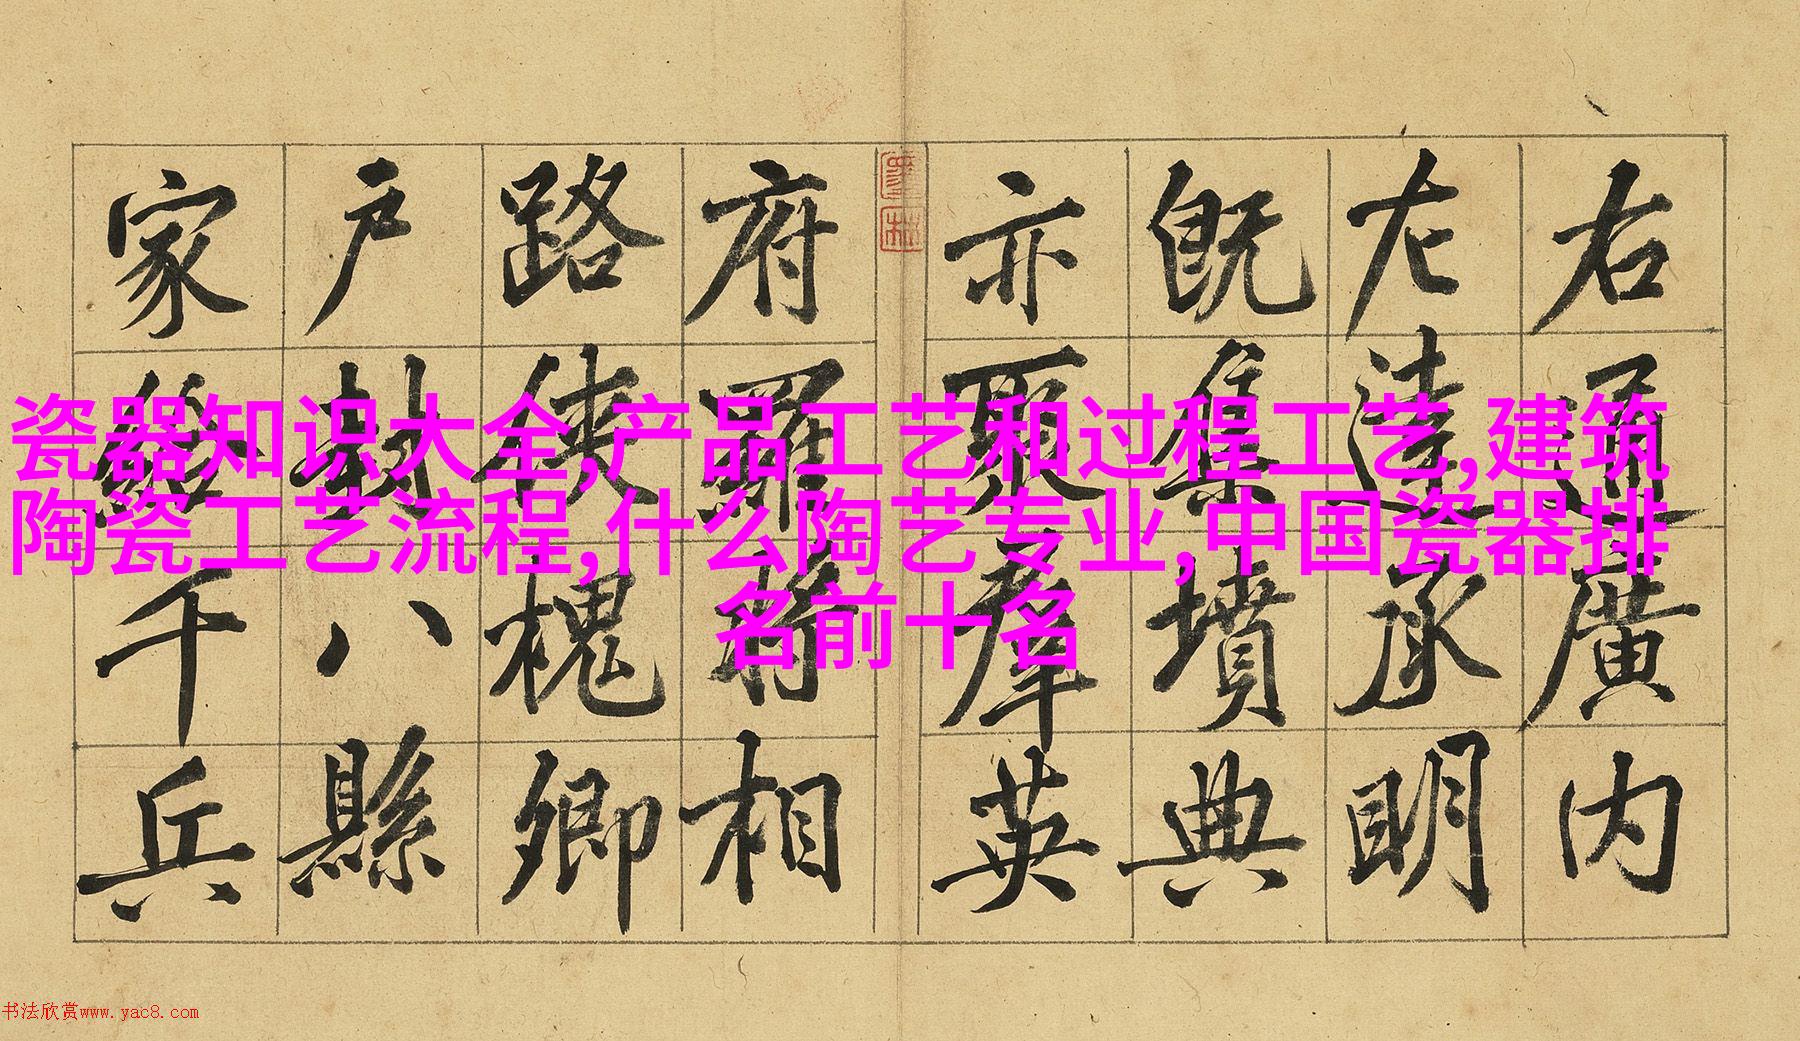 右通廣内
左達承明
既集墳典
亦聚羣英
府羅將相
路俠槐卿
戶封八縣
家給千兵
瓷器知识大全,产品工艺和过程工艺,建筑
陶瓷工艺流程,什么陶艺专业,中国瓷器排
名前十名
书法欣赏www.yac8.com